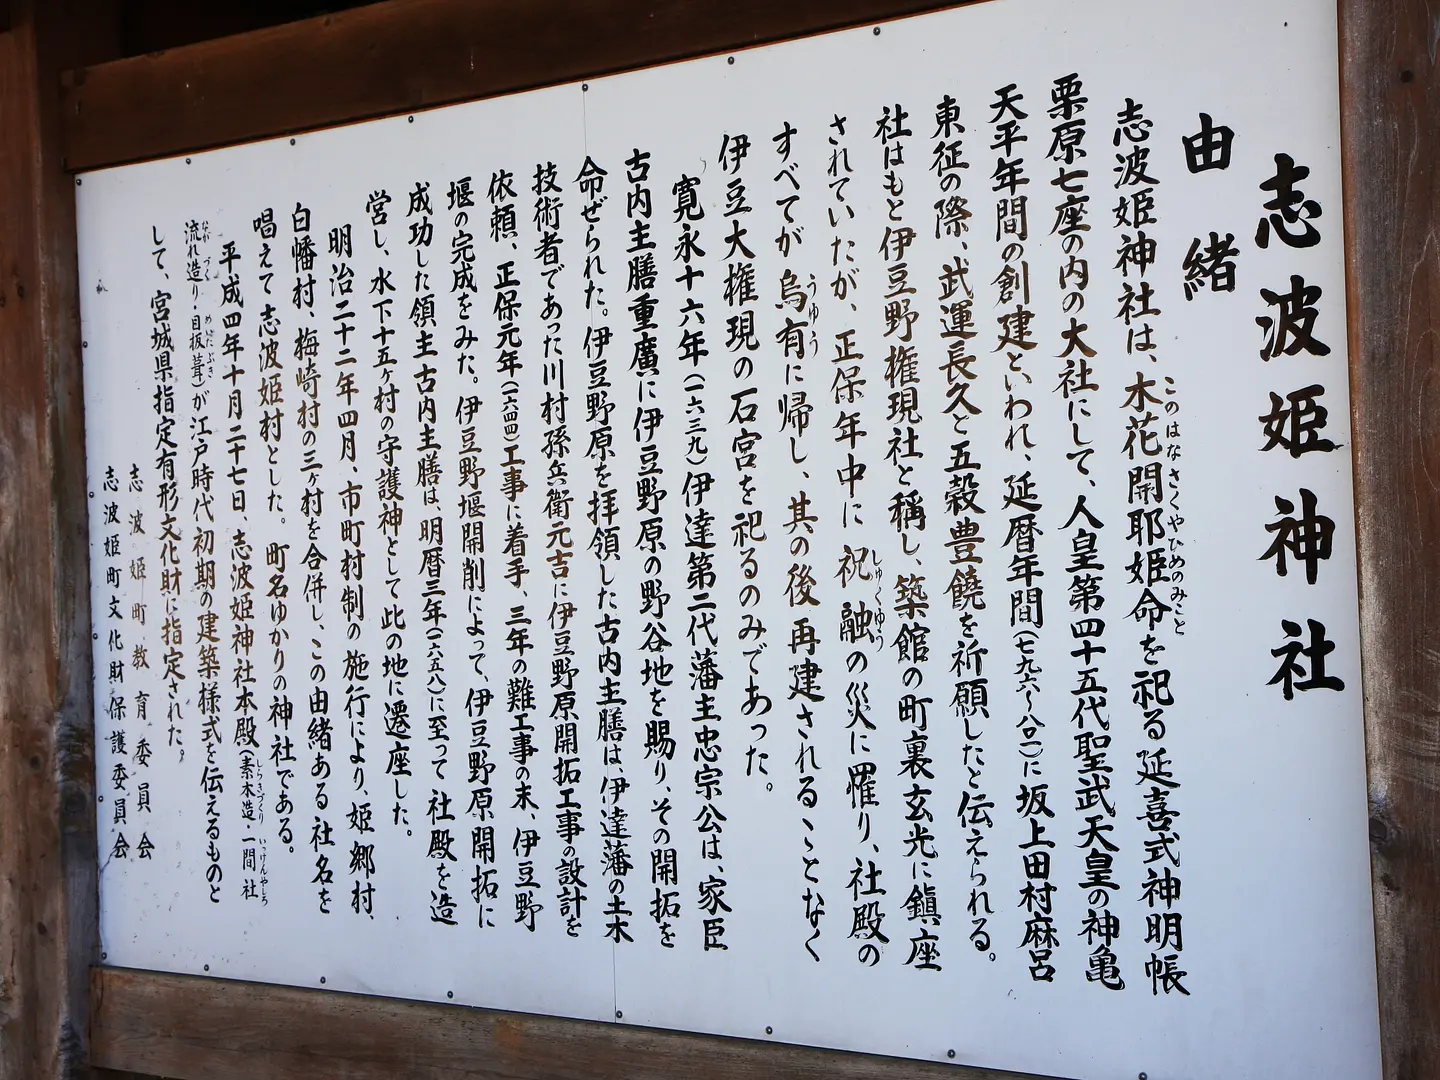 志波姫神社
由緒
志波姫神社は、木花開耶姫命を祀る延喜式神明帳
このはなさくやひめのみこと
栗原七座の内の大社にして、人皇第四十五代聖武天皇の神亀
天平年間の創建といわれ、延暦年間(七九六〜八〇一)に坂上田村麻呂
東征の際、武運長久と五穀豊饒を祈願したと伝えられる。
社はもと伊豆野権現社と稱し、築館の町裏玄光に鎮座
されていたが、正保年中に祝融の災に罹り、社殿の
しゅくゆう
すべてが烏有に帰し、其の後再建されることなく
うゆう
伊豆大権現の石宮を祀るのみであった。
寛永十六年(一六三九)伊達第二代藩主忠宗公は、家臣
古内主膳重廣に伊豆野原の野谷地を賜り、その開拓を
命ぜられた。伊豆野原を拝領した古内主膳は、伊達藩の土木
技術者であった川村孫兵衛元吉に伊豆野原開拓工事の設計を
依頼、正保元年(一六四四)工事に着手、三年の難工事の末、伊豆野
堰の完成をみた。伊豆野堰開削によって、伊豆野原開拓に
成功した領主古内主膳は、明暦三年(一六五八)に至って社殿を造
営し、水下十五ヶ村の守護神として此の地に遷座した。
明治二十二年四月、市町村制の施行により、姫郷村
白幡村、梅崎村の三ヶ村を合併し、この由緒ある社名を
唱えて志波姫村とした。町名ゆかりの神社である。
平成四年十月二十七日、志波姫神社本殿(素木造・一間社
しらきづくり いっけんやしろ
流れ造り・目板葺)が江戸時代初期の建築様式を伝えるものと
なが づく めいたぶき
して、宮城県指定有形文化財に指定された。
志波姫町教育委員会
志波姫町文化財保護委員会